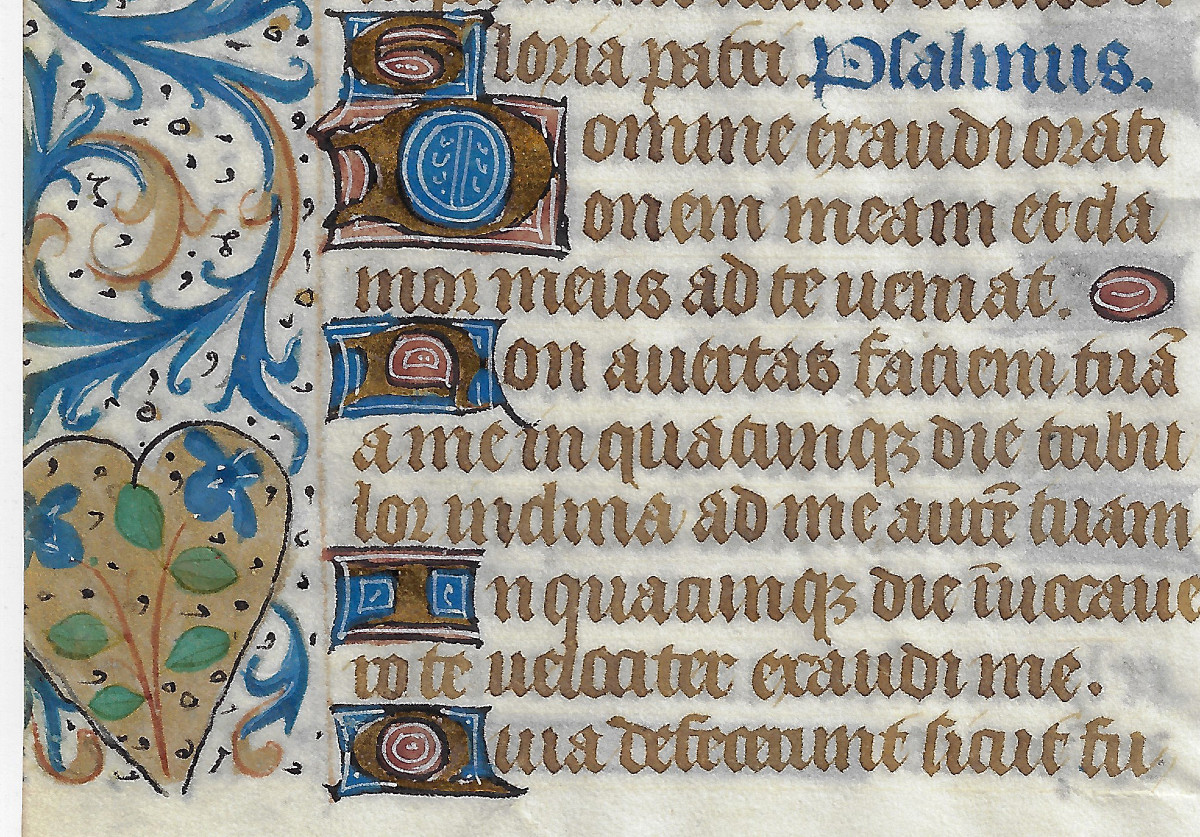 Gloria patri. Psalmus.
Domine exaudi orati
onem meam et cla
mor meus ad te ueniat.
Non auertas faciem tuā
a me in quacunqꝫ die tribu
lor inclina ad me aurē tuam
In quacunqꝫ die īuocaue
ro te uelociter exaudi me.
Quia defecerunt sicut fu